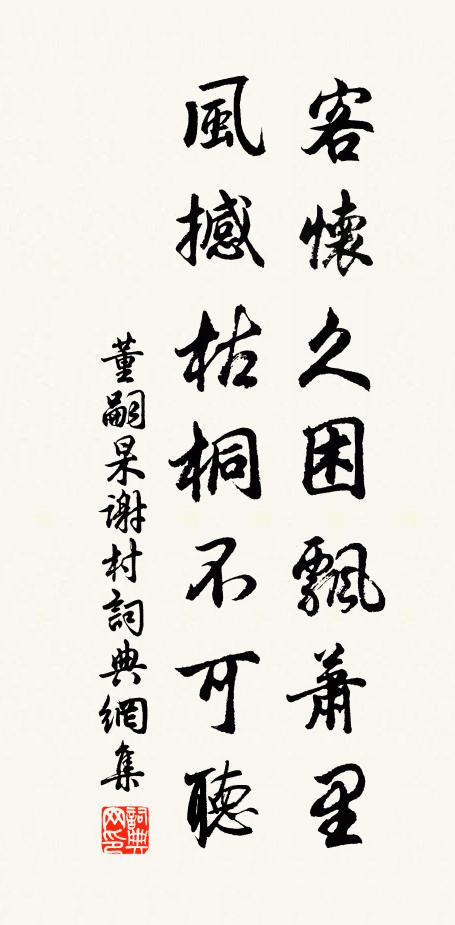 客懷久困飄蕭里
風撼枯桐不可聽
董嗣杲謝村詞典網集
詞典網印